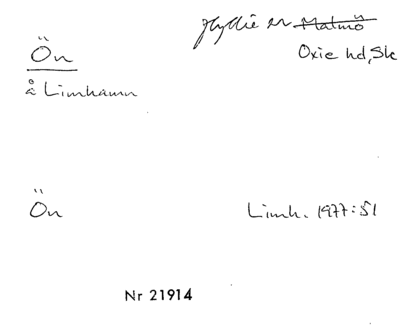 Hyllie sn Malmö
Ön
Oxie hd, Sk
å Limhamn
Ön
Limh. 1977:51
Nr 21914